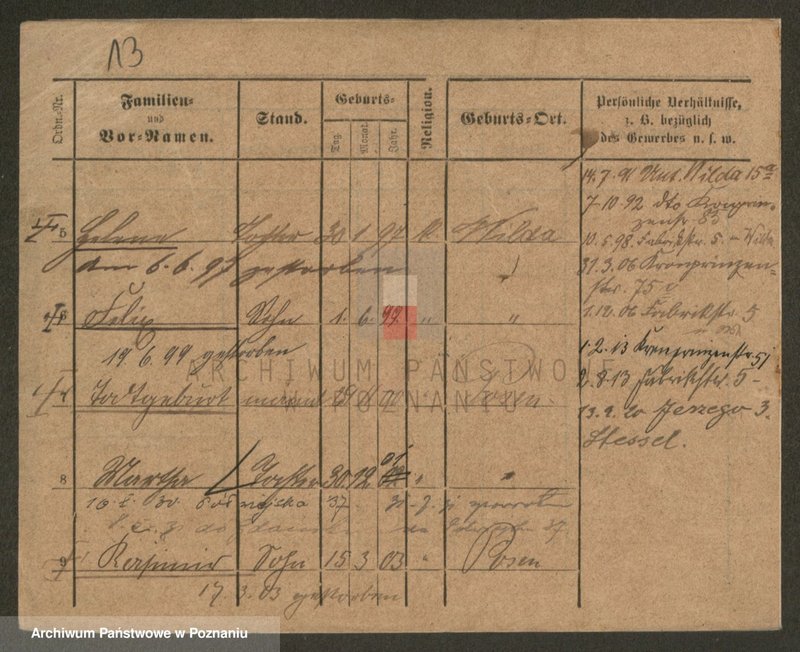 13
Ordn.-Nr.
Familien-
und
Vor-Namen.
Stand.
Geburts-
Tag.
Monat.
Jahr.
Religion.
Geburts-Ort.
Persönliche Verhältnisse,
z. B. bezüglich
des Gewerbes u. s. w.
5 Helene Tochter 30 1 97 k. Wilda
am 6.6.97 gestorben
6 Felix Sohn 1. 6. 99 " "
19 6. 99 gestorben
7 Todtgeburt
8 Martha Tochter 30 12 01 "
9 Kasimir Sohn 15 3 03 " Posen
17. 3. 03 gestorben
14. 7. 91 Unt. Wilda 15a
7-10.92 dto Kronprin-
zenstr 83
10.5.98. Fabrikstr. 5. Wilda
31.3.06 Kronprinzen-
str. 75
1.12.06 Fabrikstr. 5
1.2.13 Kronprinzenstr. 51
2.8.13 Fabrikstr. 5 -
13.9.20 Jerzego 3.
Stessel.
ARCHIWUM PAŃSTWOWE
W POZNANIU
Archiwum Państwowe w Poznaniu